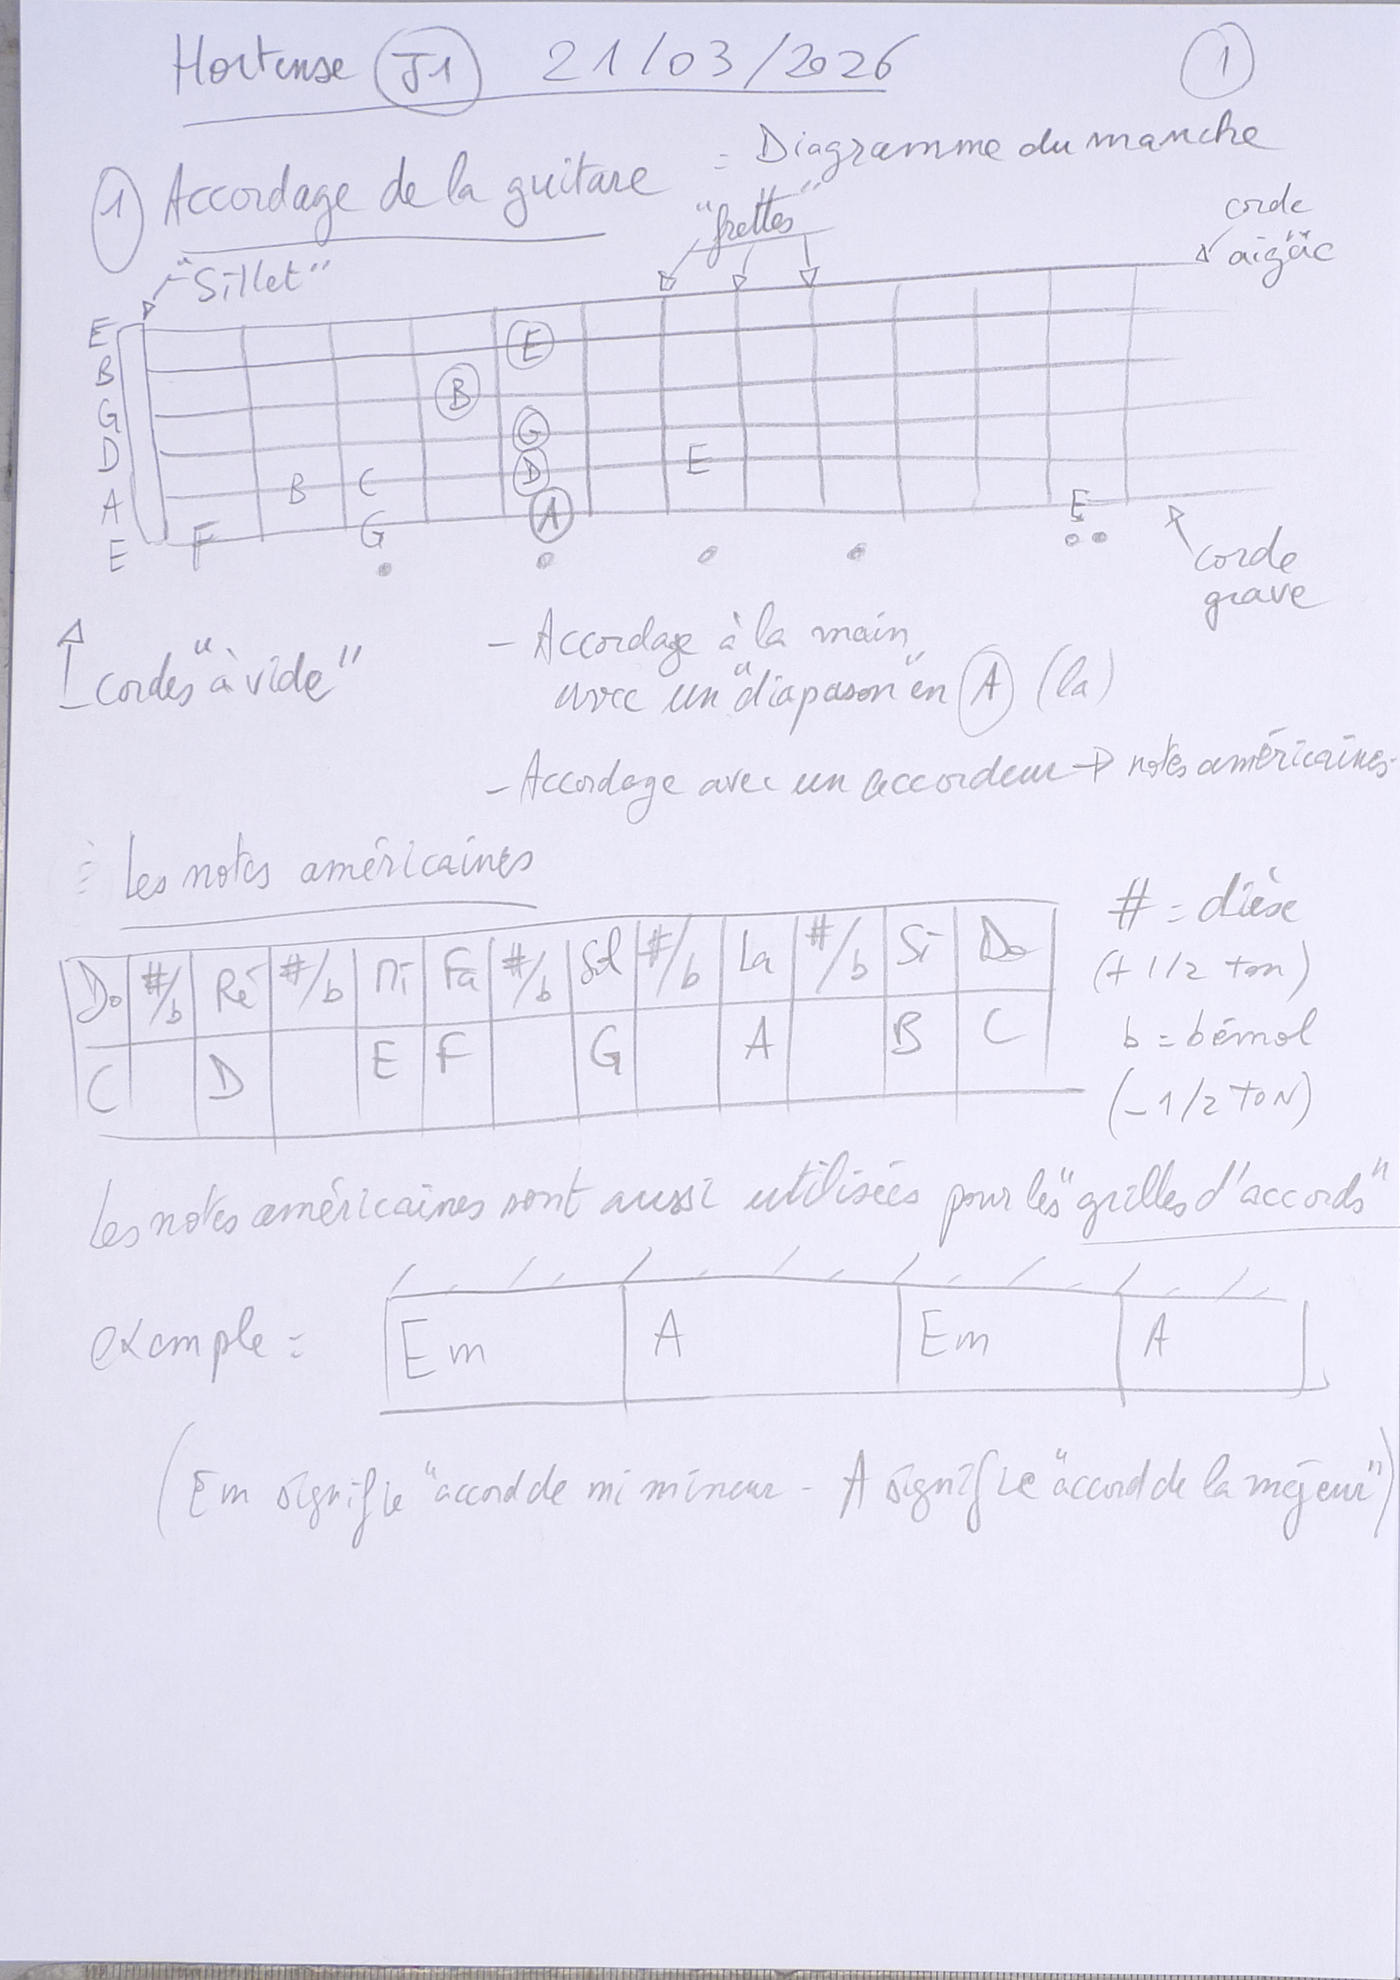 Hortense J1 21/03/2026 1
1 Accordage de la guitare = Diagramme du manche
"Sillet" "frettes" corde
aigüe
E
B
G
D
A
E
E
B
G
D
B C E
A
F G E
corde
grave
cordes "à vide"
- Accordage à la main
avec un "diapason" en A (la)
- Accordage avec un accordeur → notes américaines.
Les notes américaines
Do #/b Ré #/b Mi Fa #/b Sol #/b La #/b Si Do
C D E F G A B C
# = dièse
(+ 1/2 ton)
b = bémol
(- 1/2 TON)
Les notes américaines sont aussi utilisées pour les "grilles d'accords"
exemple =
Em A Em A
(Em signifie "accord de mi mineur - A signifie "accord de la majeur")